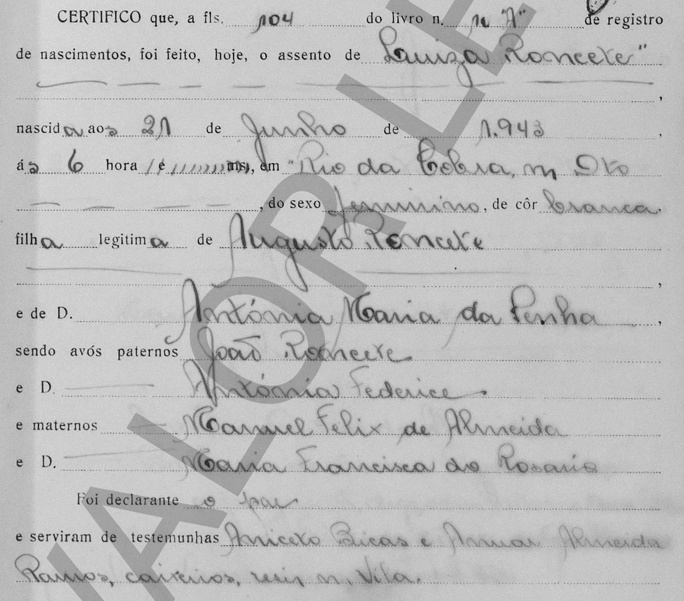 CERTIFICO que, a fls. 104 do livro n. 1º "A" de registro
de nascimentos, foi feito, hoje, o assento de Luiza Roncete"
nascida aos 21 de Junho de 1.943,
ás 6 hora / e ms), em "Rio da Cobra, n, Dto
, do sexo feminino, de côr branca.
filha legitima de Augusto Roncete
,
e de D. Antónia Maria da Penha,
sendo avós paternos João Roncete
e D. Antónia Federice.
e maternos Manuel Felix de Almeida
e D. Maria Francisca do Rosario
Foi declarante o pae
e serviram de testemunhas Aniceto Bicas e Almeida
Ramos, n, Vila.
VALOR LE